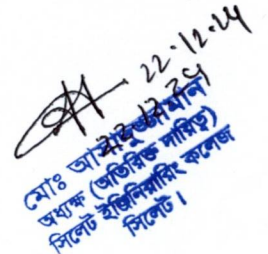 22.12.24
22.12.24
মোঃ
অধ্যক্ষ (অতিরিক্ত দায়িত্ব)
সিলেট ইঞ্জিনিয়ারিং কলেজ
সিলেট।